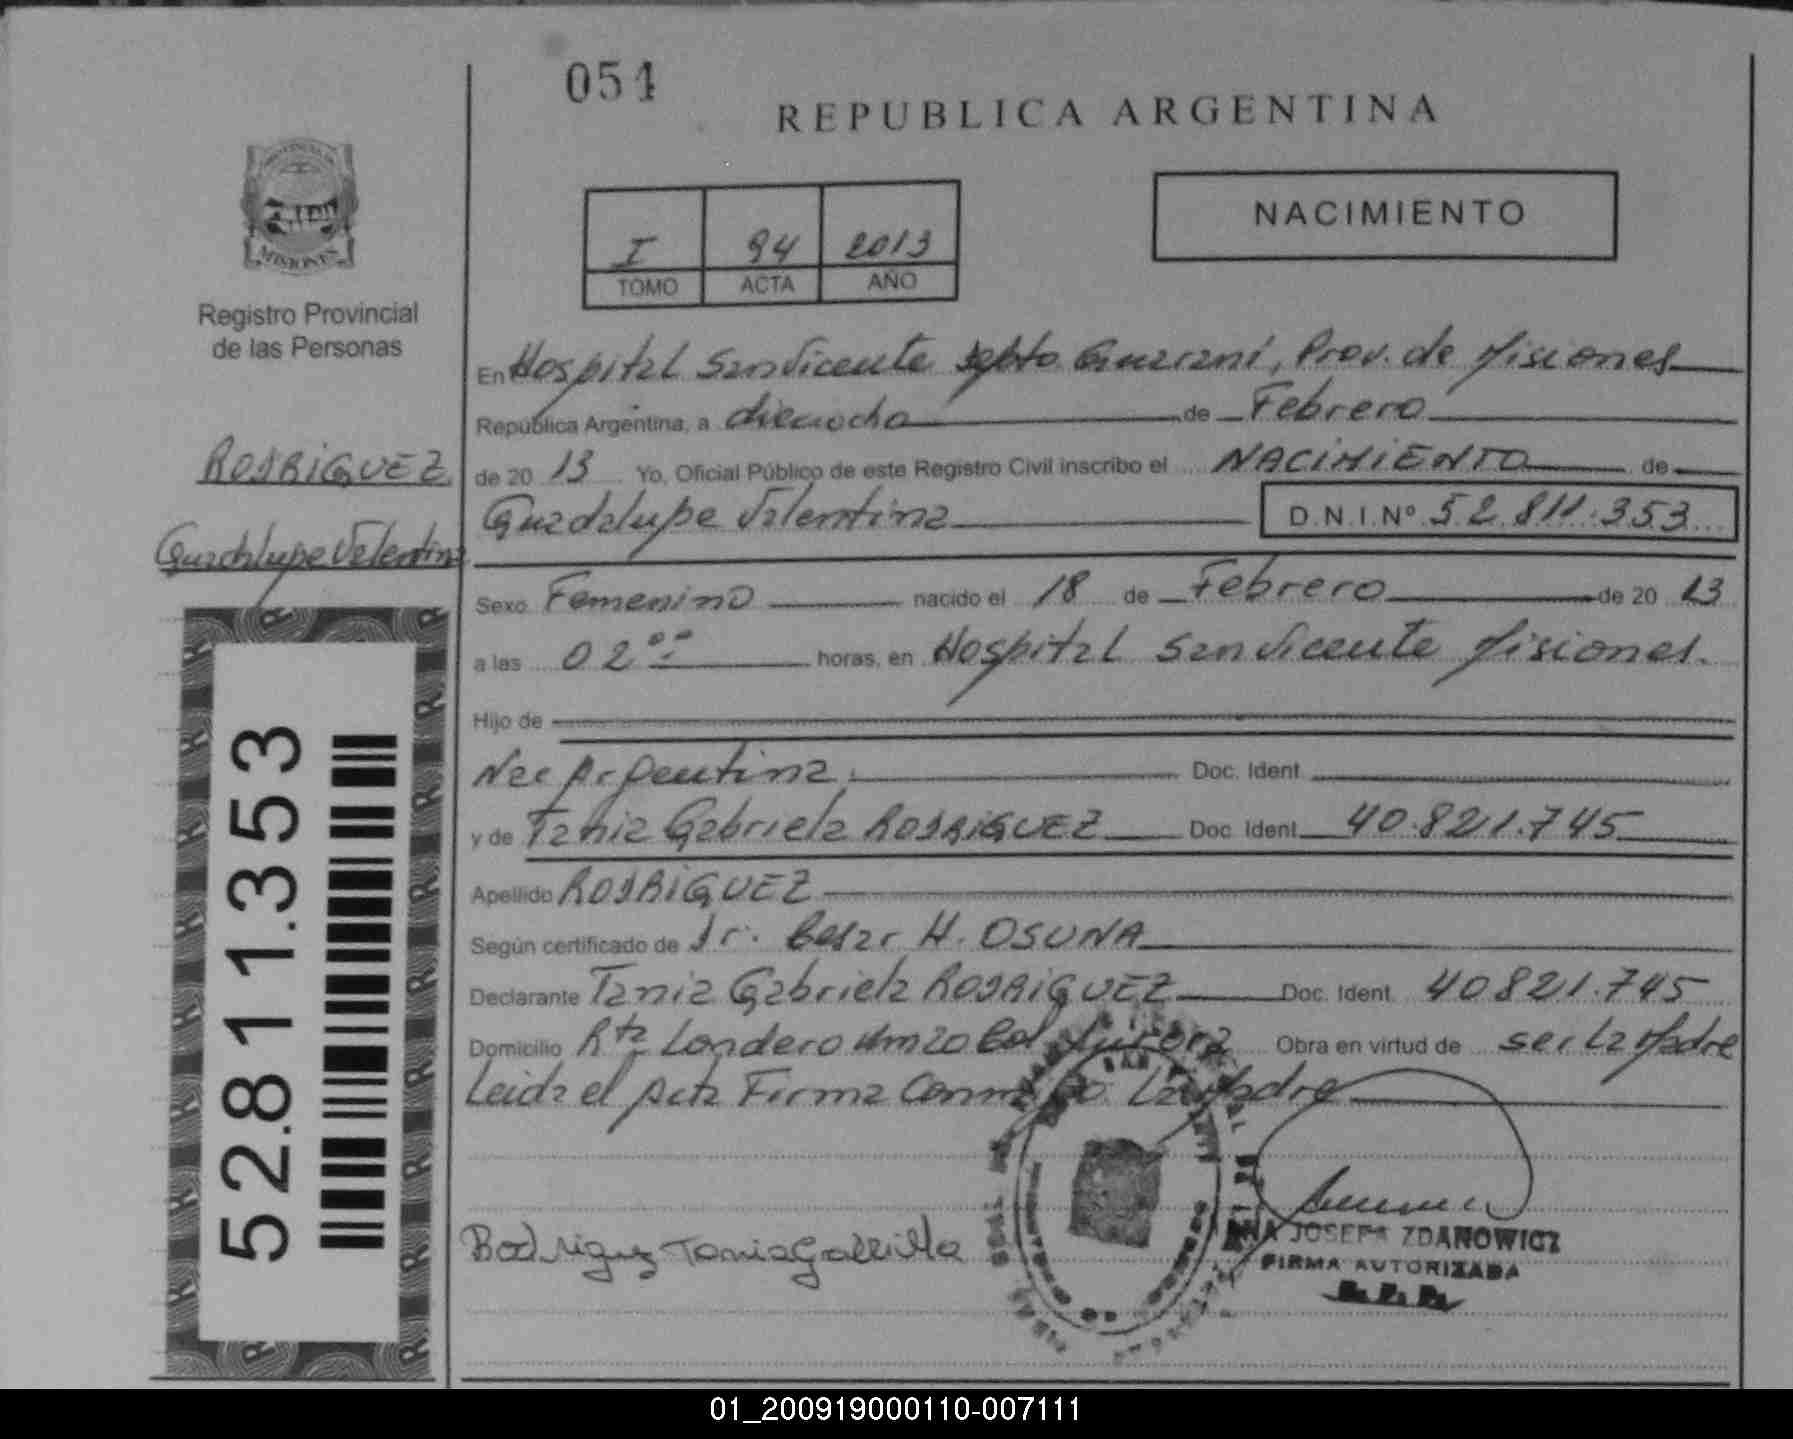 054
REPUBLICA ARGENTINA
NACIMIENTO
I 94 2013
TOMO ACTA AÑO
MISIONES
Registro Provincial
de las Personas
RODRIGUEZ
Guadalupe Valentina
En Hospital San Vicente Dpto Guarani, Prov. de Misiones
República Argentina, a dieciocho de Febrero
de 20 13 Yo, Oficial Público de este Registro Civil inscribo el NACIMIENTO de
Guadalupe Valentina D.N.I. Nº 52.811.353
Sexo Femenino nacido el 18 de Febrero de 20 13
a las 02 00 horas, en Hospital San Vicente Misiones.
Hijo de
Nac Argentina. Doc. Ident.
y de Tania Gabriela RODRIGUEZ Doc. Ident. 40.821.745
Apellido RODRIGUEZ
Según certificado de Dr. Cesar H. OSUNA
Declarante Tania Gabriela RODRIGUEZ Doc. Ident. 40821.745
Domicilio Rta Londero Km20 Col Aurora Obra en virtud de ser la Madre
Leida el Acta Firma Conmigo La Madre
Rodriguez Tania Gabriela
ANA JOSEFA ZDANOWICZ
FIRMA AUTORIZADA
R. P. P.
52.811.353
01_200919000110-007111